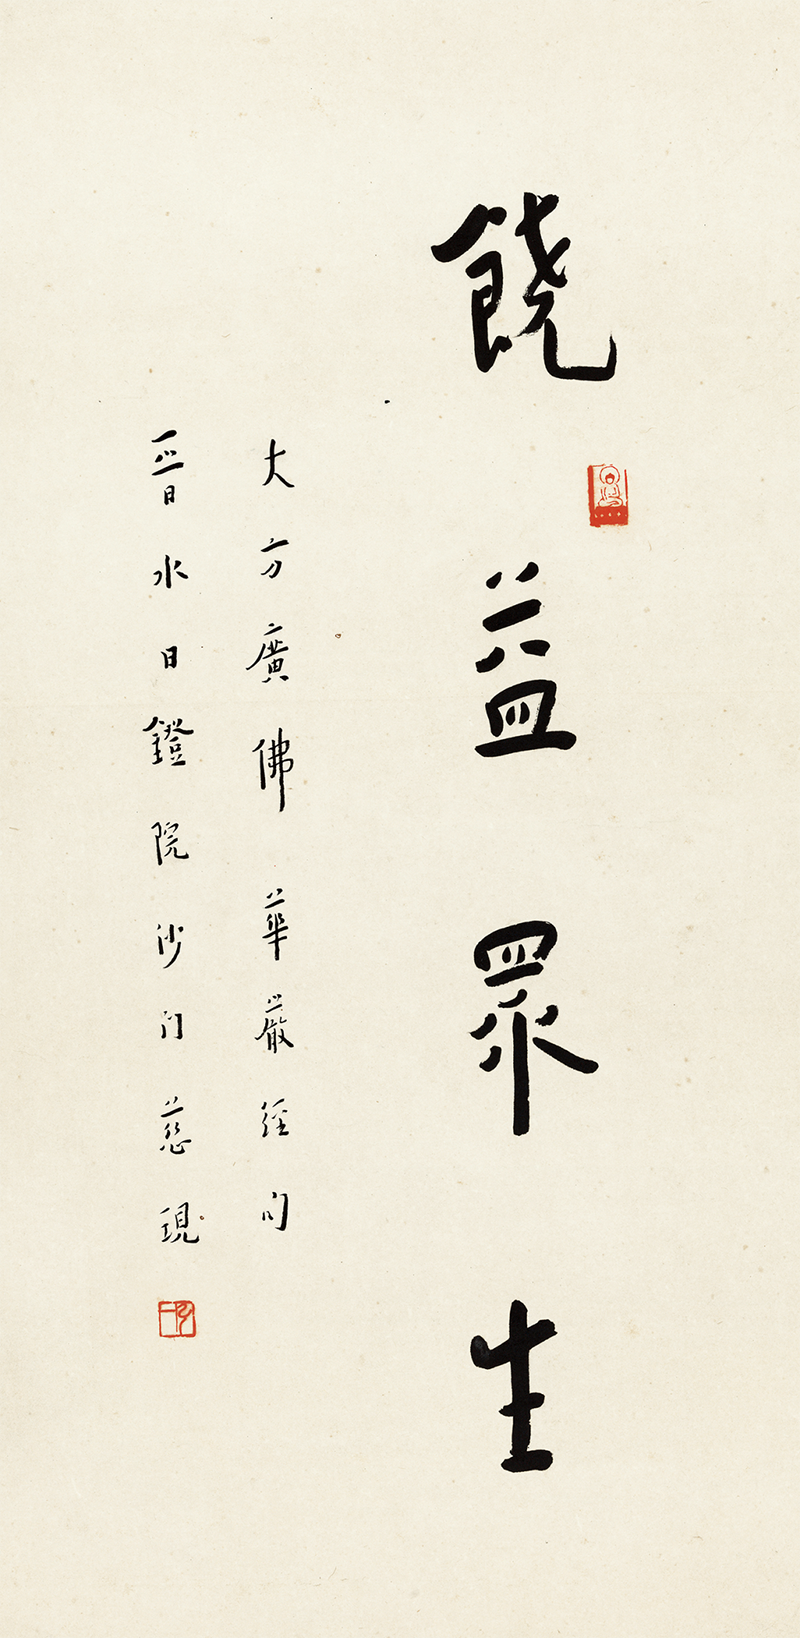 饒益眾生
大方廣佛華嚴經句
晉水月鐙院沙門慈現